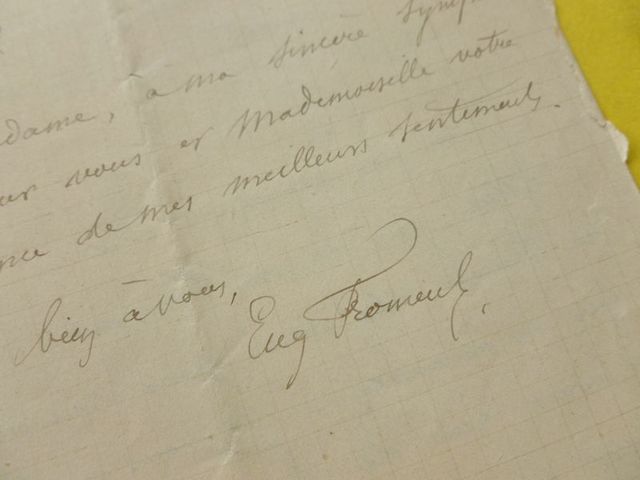 dame, à ma sincère symp
ur vous et Mademoiselle votre
nce de mes meilleurs sentiments.
bien à vous,
Eug Froment.